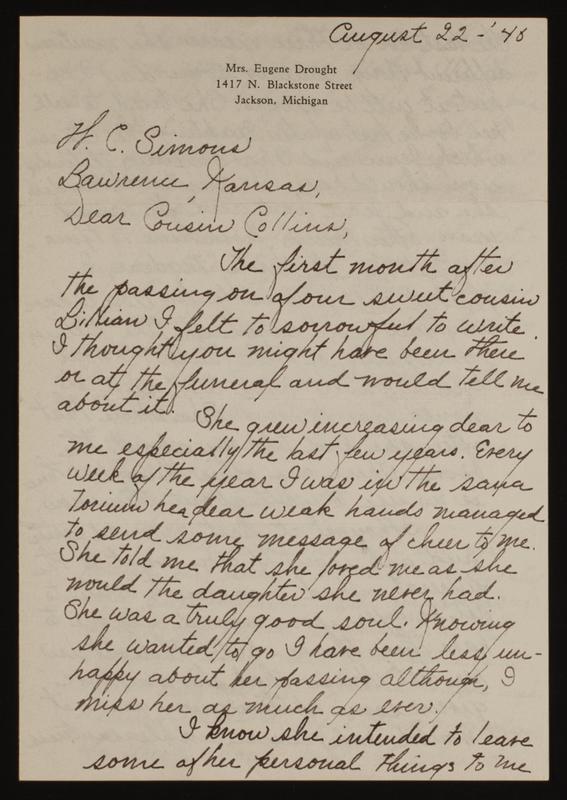 August 22-'40
Mrs. Eugene Drought
1417 N. Blackstone Street
Jackson, Michigan
W. C. Simons
Lawrence, Kansas,
Dear Cousin Collins,
The first month after
the passing on of our sweet cousin
Lillian I felt to sorrowful to write.
I thought you might have been there
or at the funeral and would tell me
about it.
She grew increasing dear to
me especially the last few years. Every
week of the year I was in the sana
torium her dear weak hands managed
to send some message of cheer to me.
She told me that she loved me as she
would the daughter she never had.
She was a truly good soul. Knowing
she wanted to go I have been less un-
happy about her passing although, I
miss her as much as ever.
I know she intended to leave
some of her personal things to me